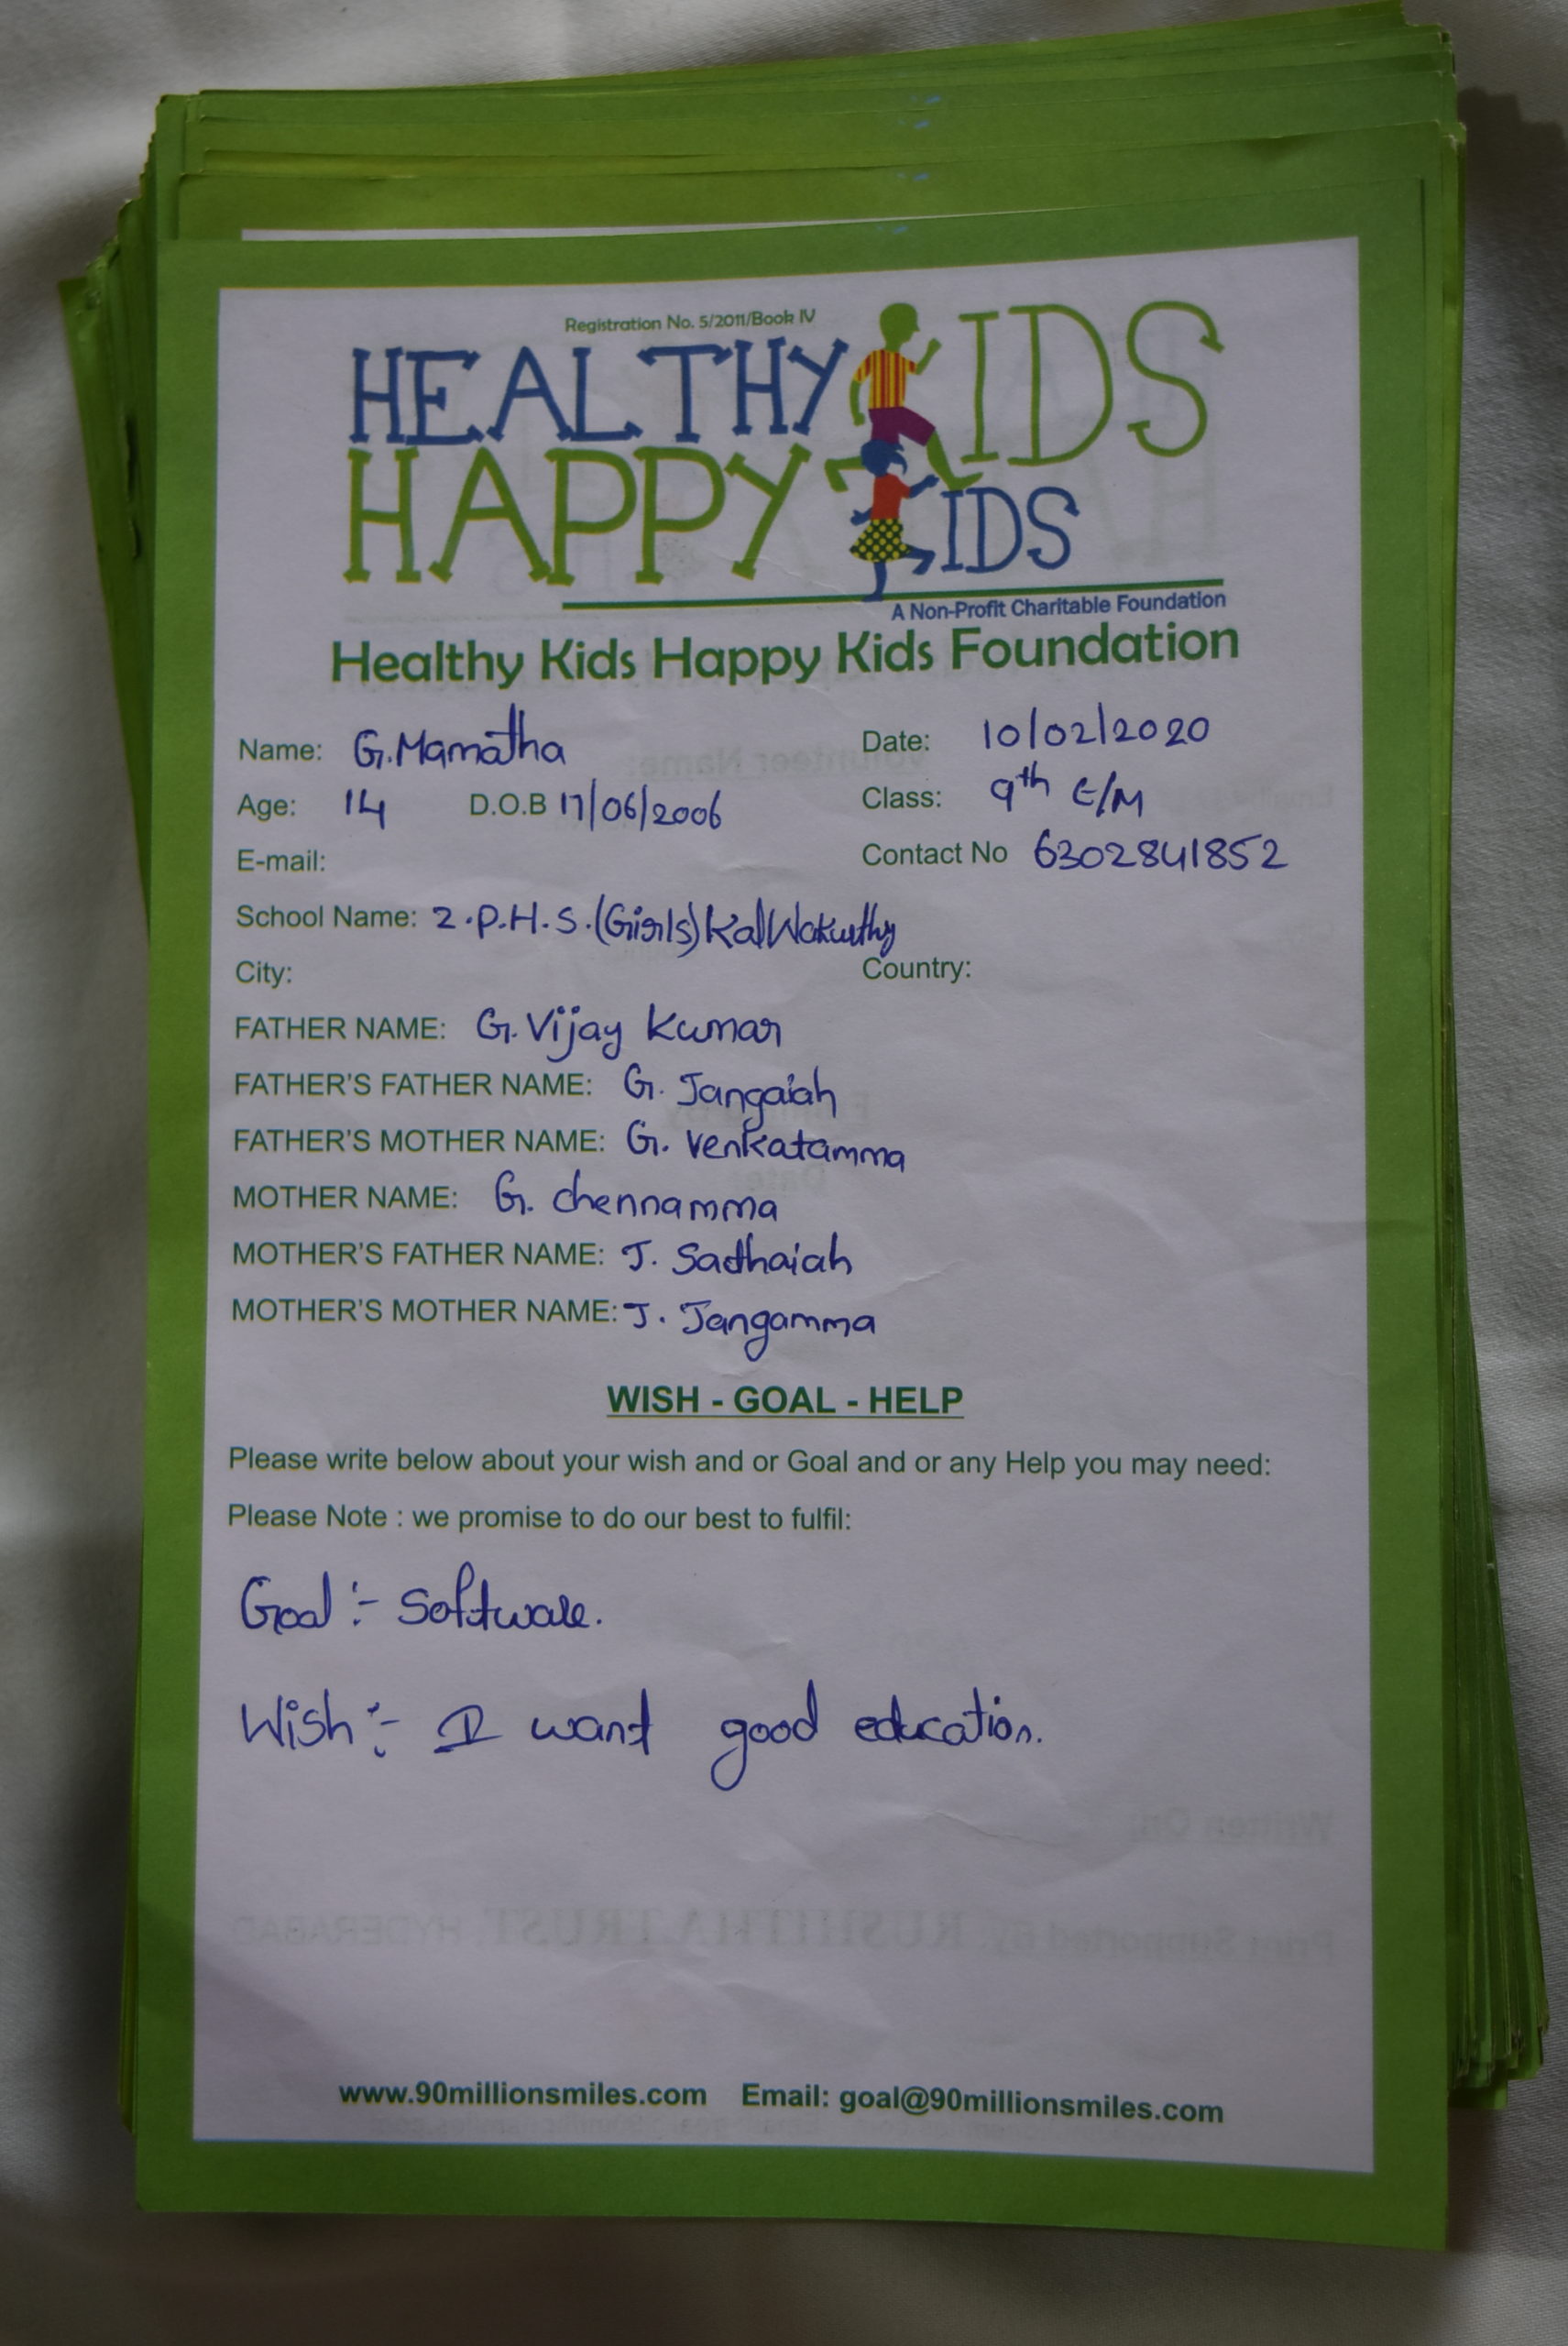 Registration No. 5/2011/Book IV
HEALTHY KIDS
HAPPY KIDS
A Non-Profit Charitable Foundation
Healthy Kids Happy Kids Foundation
Name: G.Mamatha Date: 10/02/2020
Age: 14 D.O.B 17/06/2006 Class: 9th E/M
E-mail: Contact No 6302841852
School Name: Z.P.H.S.(Girls) Kalwakurthy
City: Country:
FATHER NAME: G. Vijay Kumar
FATHER'S FATHER NAME: G. Jangaiah
FATHER'S MOTHER NAME: G. Venkatamma
MOTHER NAME: G. chennamma
MOTHER'S FATHER NAME: J. Sadhaiah
MOTHER'S MOTHER NAME: J. Jangamma
WISH - GOAL - HELP
Please write below about your wish and or Goal and or any Help you may need:
Please Note : we promise to do our best to fulfil:
Goal :- Software.
Wish :- I want good education.
www.90millionsmiles.com Email: goal@90millionsmiles.com